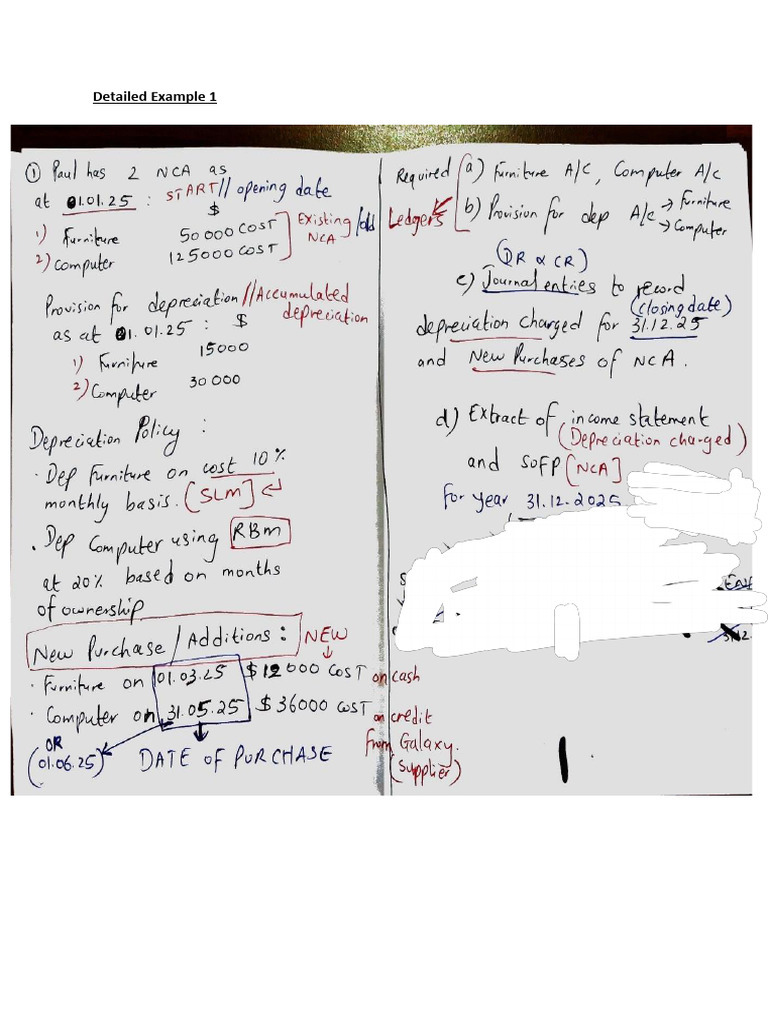 Detailed Example 1
① Paul has 2 NCA as
at 01.01.25 : START // opening date
$
1) Furniture 50 000 COST
2) Computer 125000 COST
Existing NCA /old
Provision for depreciation // Accumulated depreciation
as at 01.01.25 : $
1) Furniture 15000
2) Computer 30 000
Depreciation Policy :
· Dep Furniture on cost 10%
monthly basis. [SLM]
· Dep Computer using RBM
at 20% based on months
of ownership
New Purchase / Additions : NEW
· Furniture on 01.03.25 $12 000 COST on cash
· Computer on 31.05.25 $36000 COST on credit
from Galaxy.
(Supplier)
OR
(01.06.25)
DATE OF PURCHASE
Required a) Furniture A/C, Computer A/C
Ledgers
b) Provision for dep A/C → Furniture
→ Computer
(DR & CR)
c) Journal entries to record
(closing date)
depreciation charged for 31.12.25
and New Purchases of NCA.
d) Extract of income statement
(Depreciation charged)
and SOFP [NCA]
for year 31.12.2025